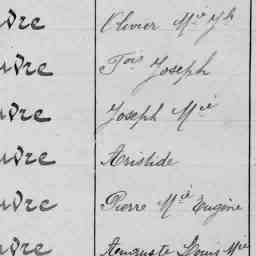 udre Olivier Mie Jh
udre Fois Joseph
udre Joseph Mie
udre Aristide
udre Pierre Mie Eugène
udre Auguste Louis Mie